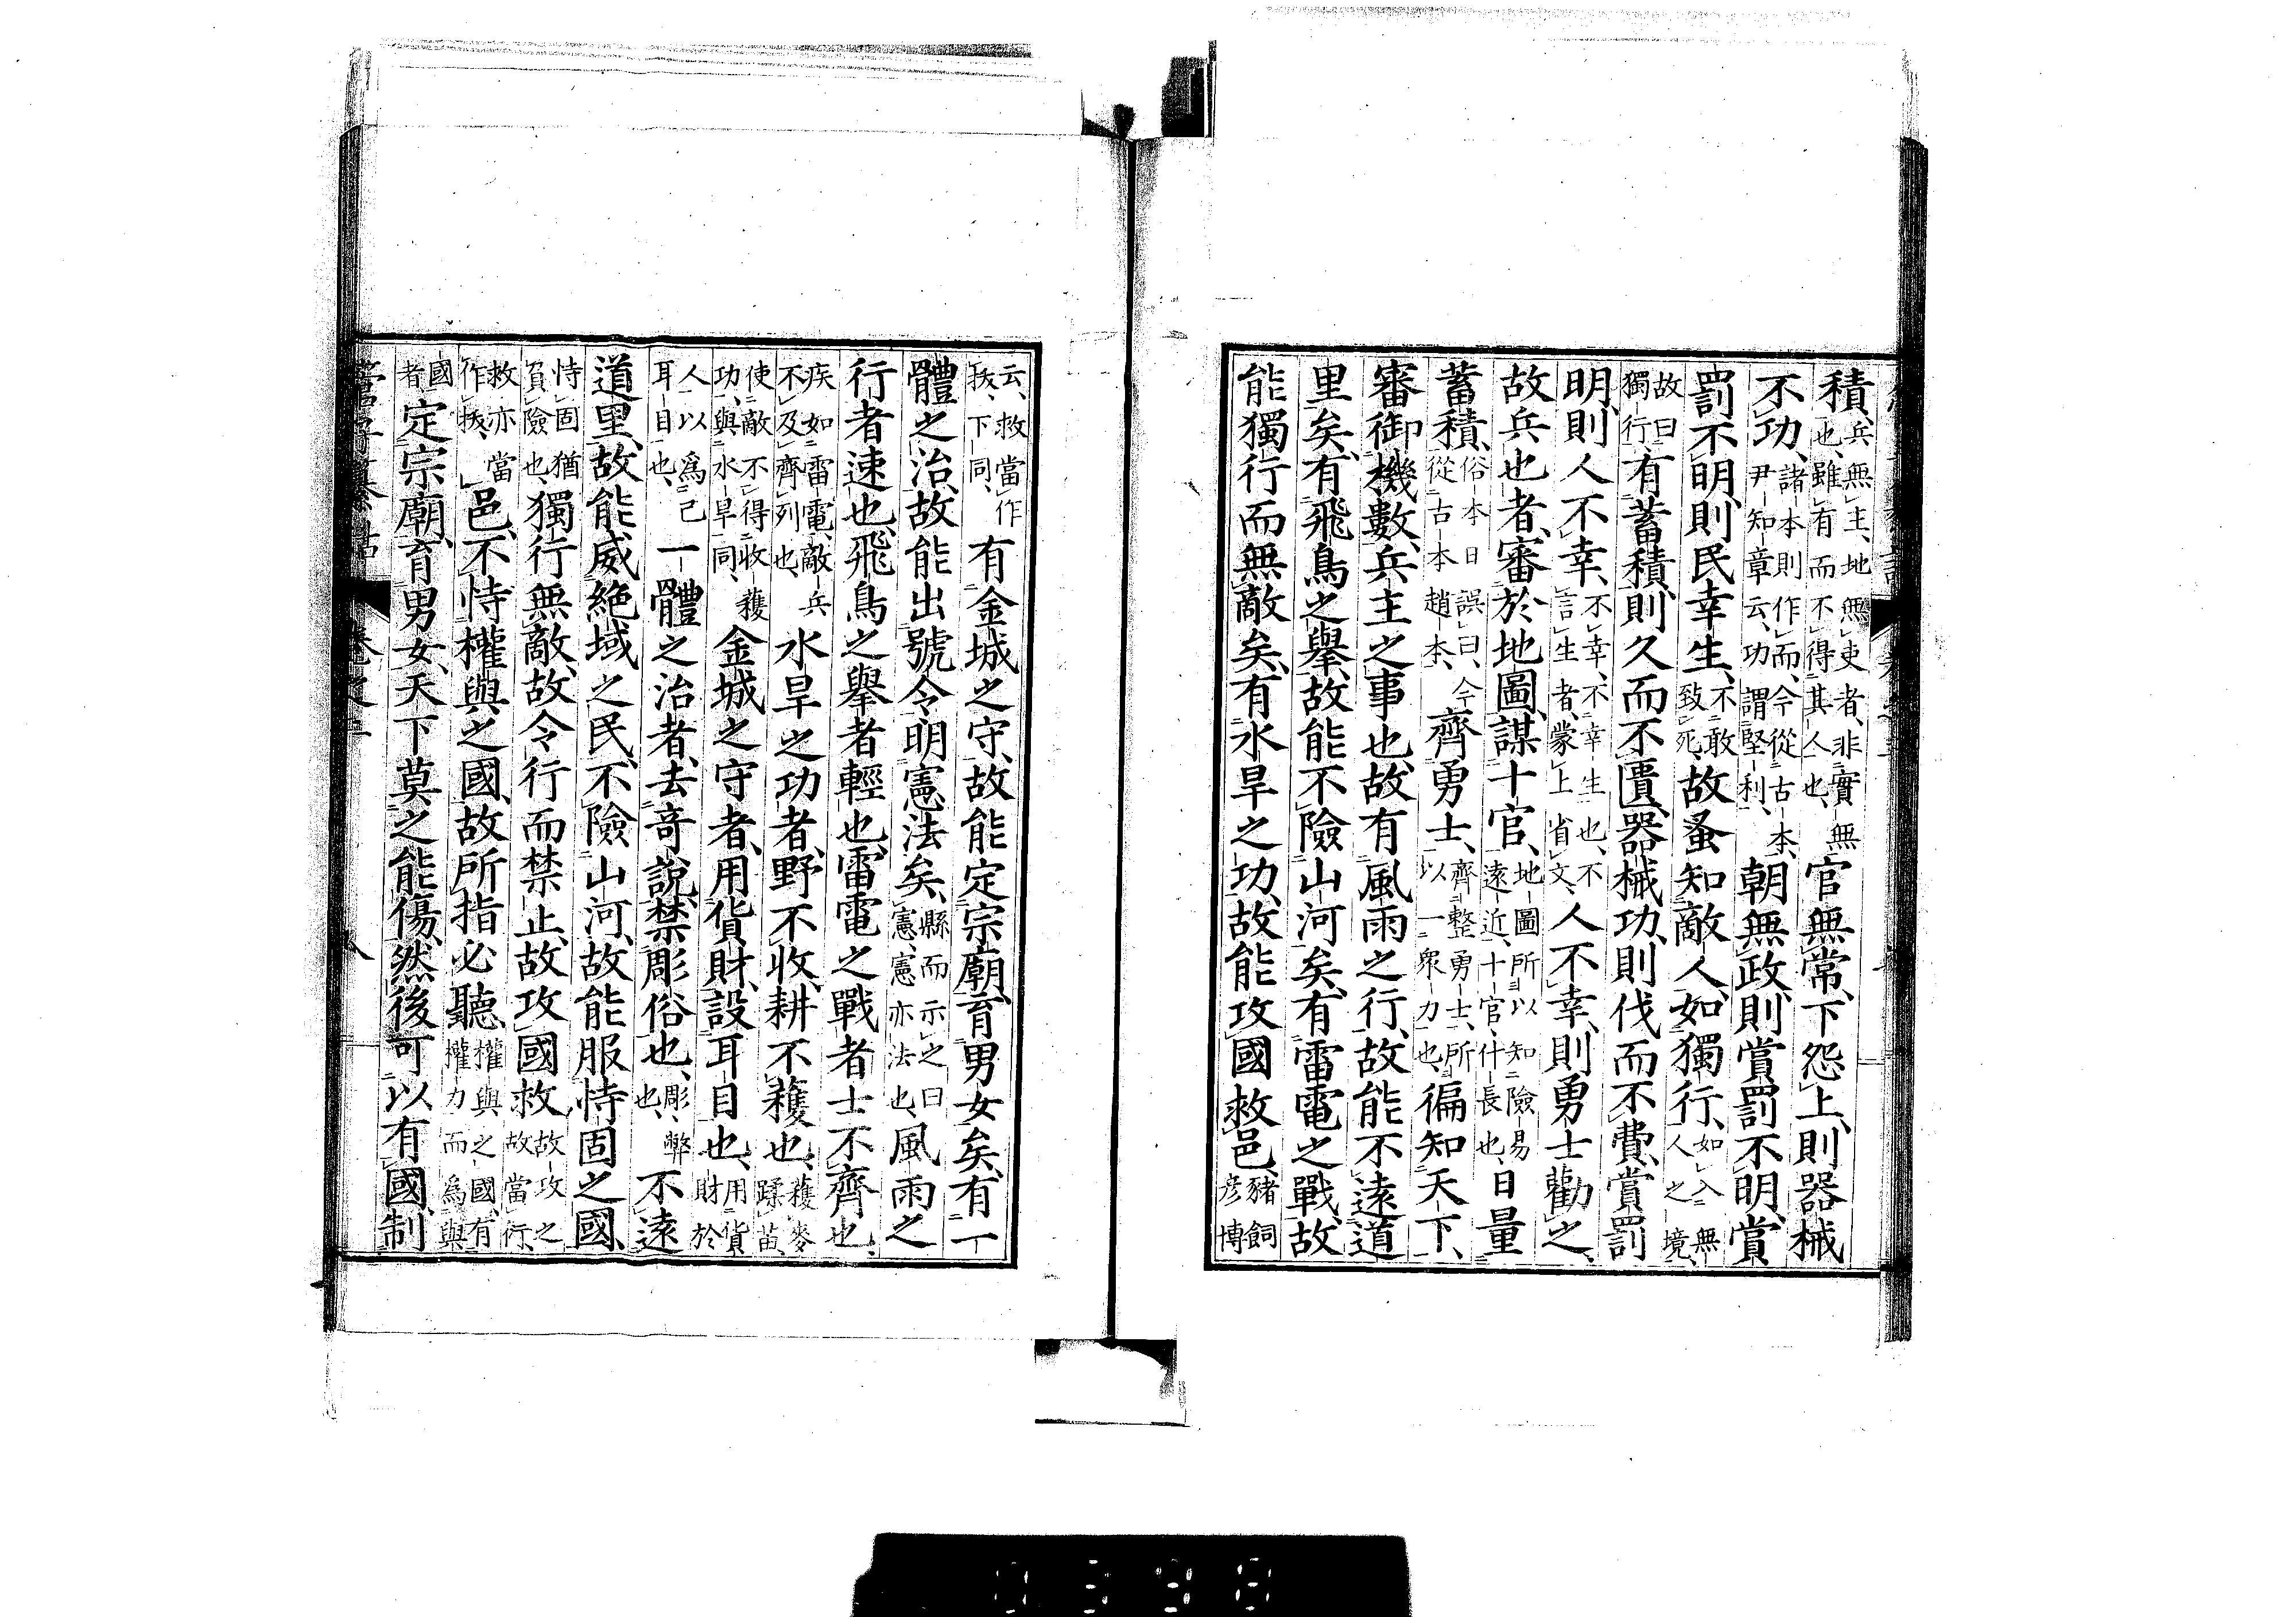 積、兵無主、地無吏者、非實無也、雖有而不得其人也、官無常、下怨上、則器械
不功、諸本則作而、今從古本、尹知章云、功謂堅利、朝無政、則賞罰不明、賞
罰不明、則民幸生、不敢致死、故蚤知敵人、如獨行、如入無人之境、
故曰獨行有蓄積、則久而不匱、器械功、則伐而不費、賞罰
明、則人不幸、不幸、不幸生也、不言生者、蒙上省文、人不幸、則勇士勸之、
故兵也者、審於地圖、謀十官、地圖所以知險易遠近、十官、什長也、日量
蓄積、俗本日誤曰、今從古本趙本、齊勇士、齊整勇士、所以一衆力也、徧知天下、
審御機數、兵主之事也、故有風雨之行、故能不遠道
里矣、有飛鳥之舉、故能不險山河矣、有雷電之戰、故
能獨行而無敵矣、有水旱之功、故能攻國救邑、豬飼彥博
云、救當作拔、下同、有金城之守、故能定宗廟、育男女矣、有一
體之治、故能出號令、明憲法矣、縣而示之曰憲、憲亦法也、風雨之
行者、速也、飛鳥之舉者、輕也、雷電之戰者、士不齊也、
疾如雷電、敵兵不及齊列也、水旱之功者、野不收、耕不穫也、穫麥蹂苗、
使敵不得收穫功、與水旱同、金城之守者、用貨財、設耳目也、用貨財於
人、以爲己耳目也、一體之治者、去奇說、禁彫俗也、彫、弊也、不遠
道里、故能威絕域之民、不險山河、故能服恃固之國、
恃固猶負險也、獨行無敵、故令行而禁止、故攻國救故攻之故當衍、
救亦當作拔、邑、不恃權與之國、故所指必聽、權與之國、有權力而爲與
國者、定宗廟、育男女、天下莫之能傷、然後可以有國、制
管子纂詁 卷之二 八